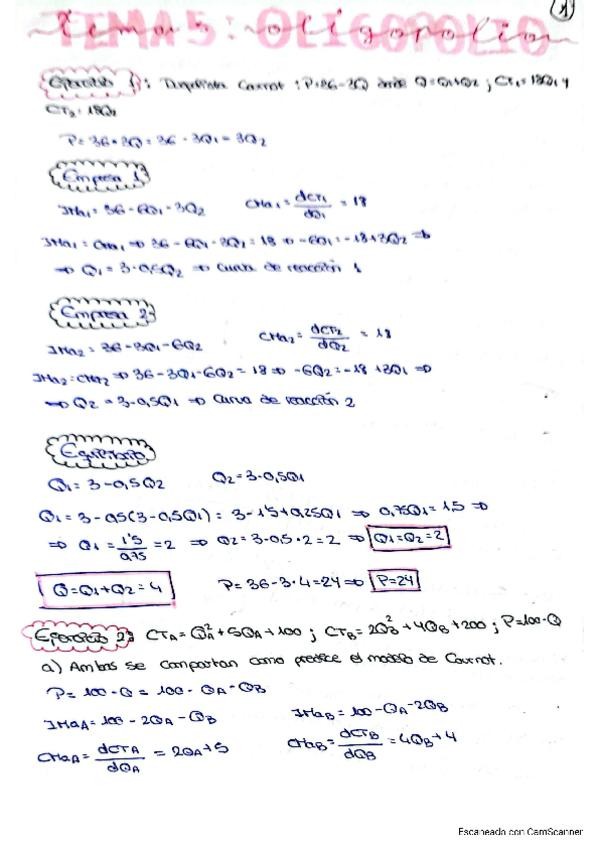 1
TEMA 5: OLIGOPOLIO
Tema 5 oligopolio
Ejercicio 1: Duopolista Cournot: P=36-3Q donde Q=Q1+Q2; CT1=18Q1 y
CT2=18Q2
P=36-3Q=36-3Q1-3Q2
Empresa 1:
IMa1=36-6Q1-3Q2 CMa1=dCT1/dQ1=18
IMa1=CMa1⇒36-6Q1-3Q2=18⇒-6Q1=-18+3Q2⇒
⇒Q1=3-0,5Q2⇒Curva de reacción 1
Empresa 2:
IMa2=36-3Q1-6Q2 CMa2=dCT2/dQ2=18
IMa2=CMa2⇒36-3Q1-6Q2=18⇒-6Q2=-18+3Q1⇒
⇒Q2=3-0,5Q1⇒Curva de reacción 2
Equilibrio
Q1=3-0,5Q2 Q2=3-0,5Q1
Q1=3-0,5(3-0,5Q1)=3-1'5+0,25Q1⇒0,75Q1=1,5⇒
⇒Q1=1'5/0,75=2⇒Q2=3-0,5·2=2⇒Q1=Q2=2
Q=Q1+Q2=4 P=36-3·4=24⇒P=24
Ejercicio 2: CTA=QA²+5QA+100; CTB=2QB²+4QB+200; P=100-Q
a) Ambas se comportan como predice el modelo de Cournot.
P=100-Q=100-QA-QB
IMaA=100-2QA-QB IMaB=100-QA-2QB
CMaA=dCTA/dQA=2QA+5 CMaB=dCTB/dQB=4QB+4
Escaneado con CamScanner